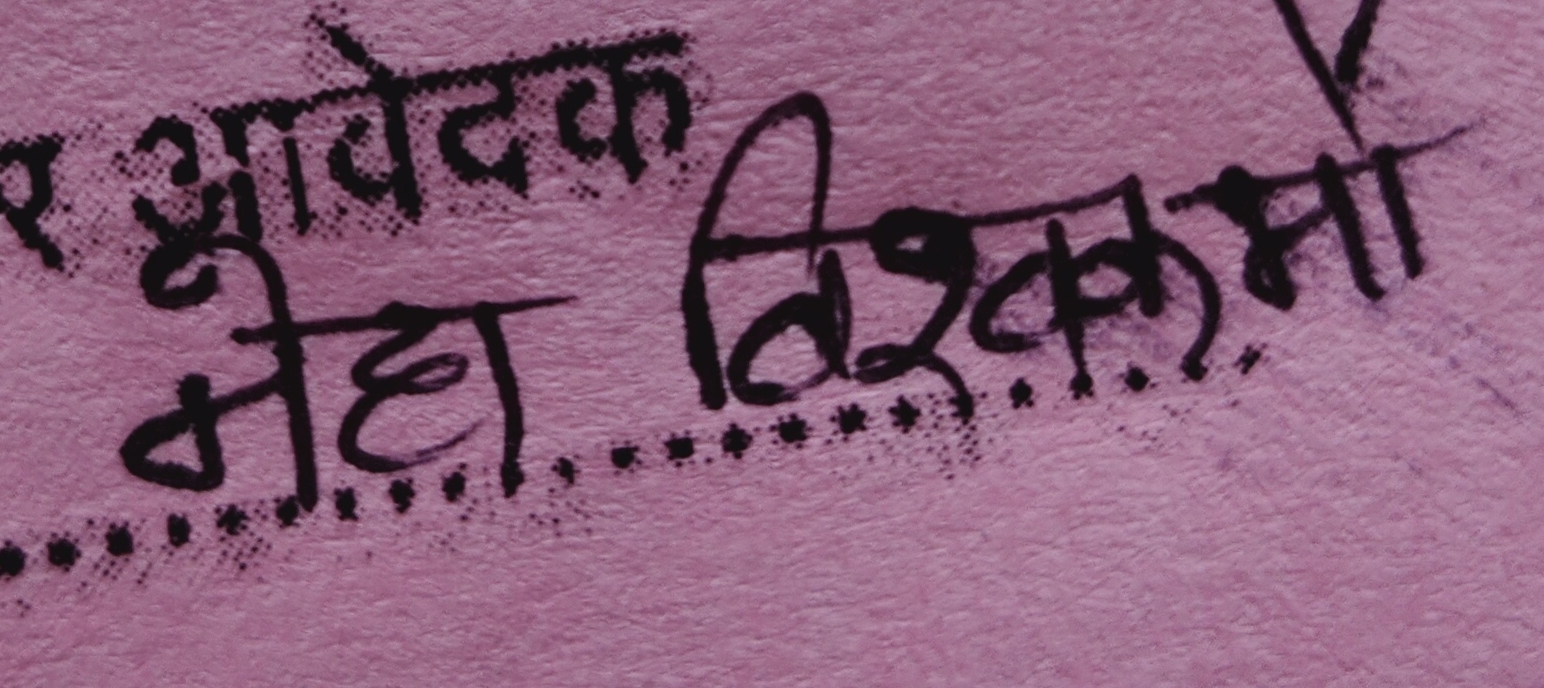 र आवेदक
नेहा विश्वकर्मा